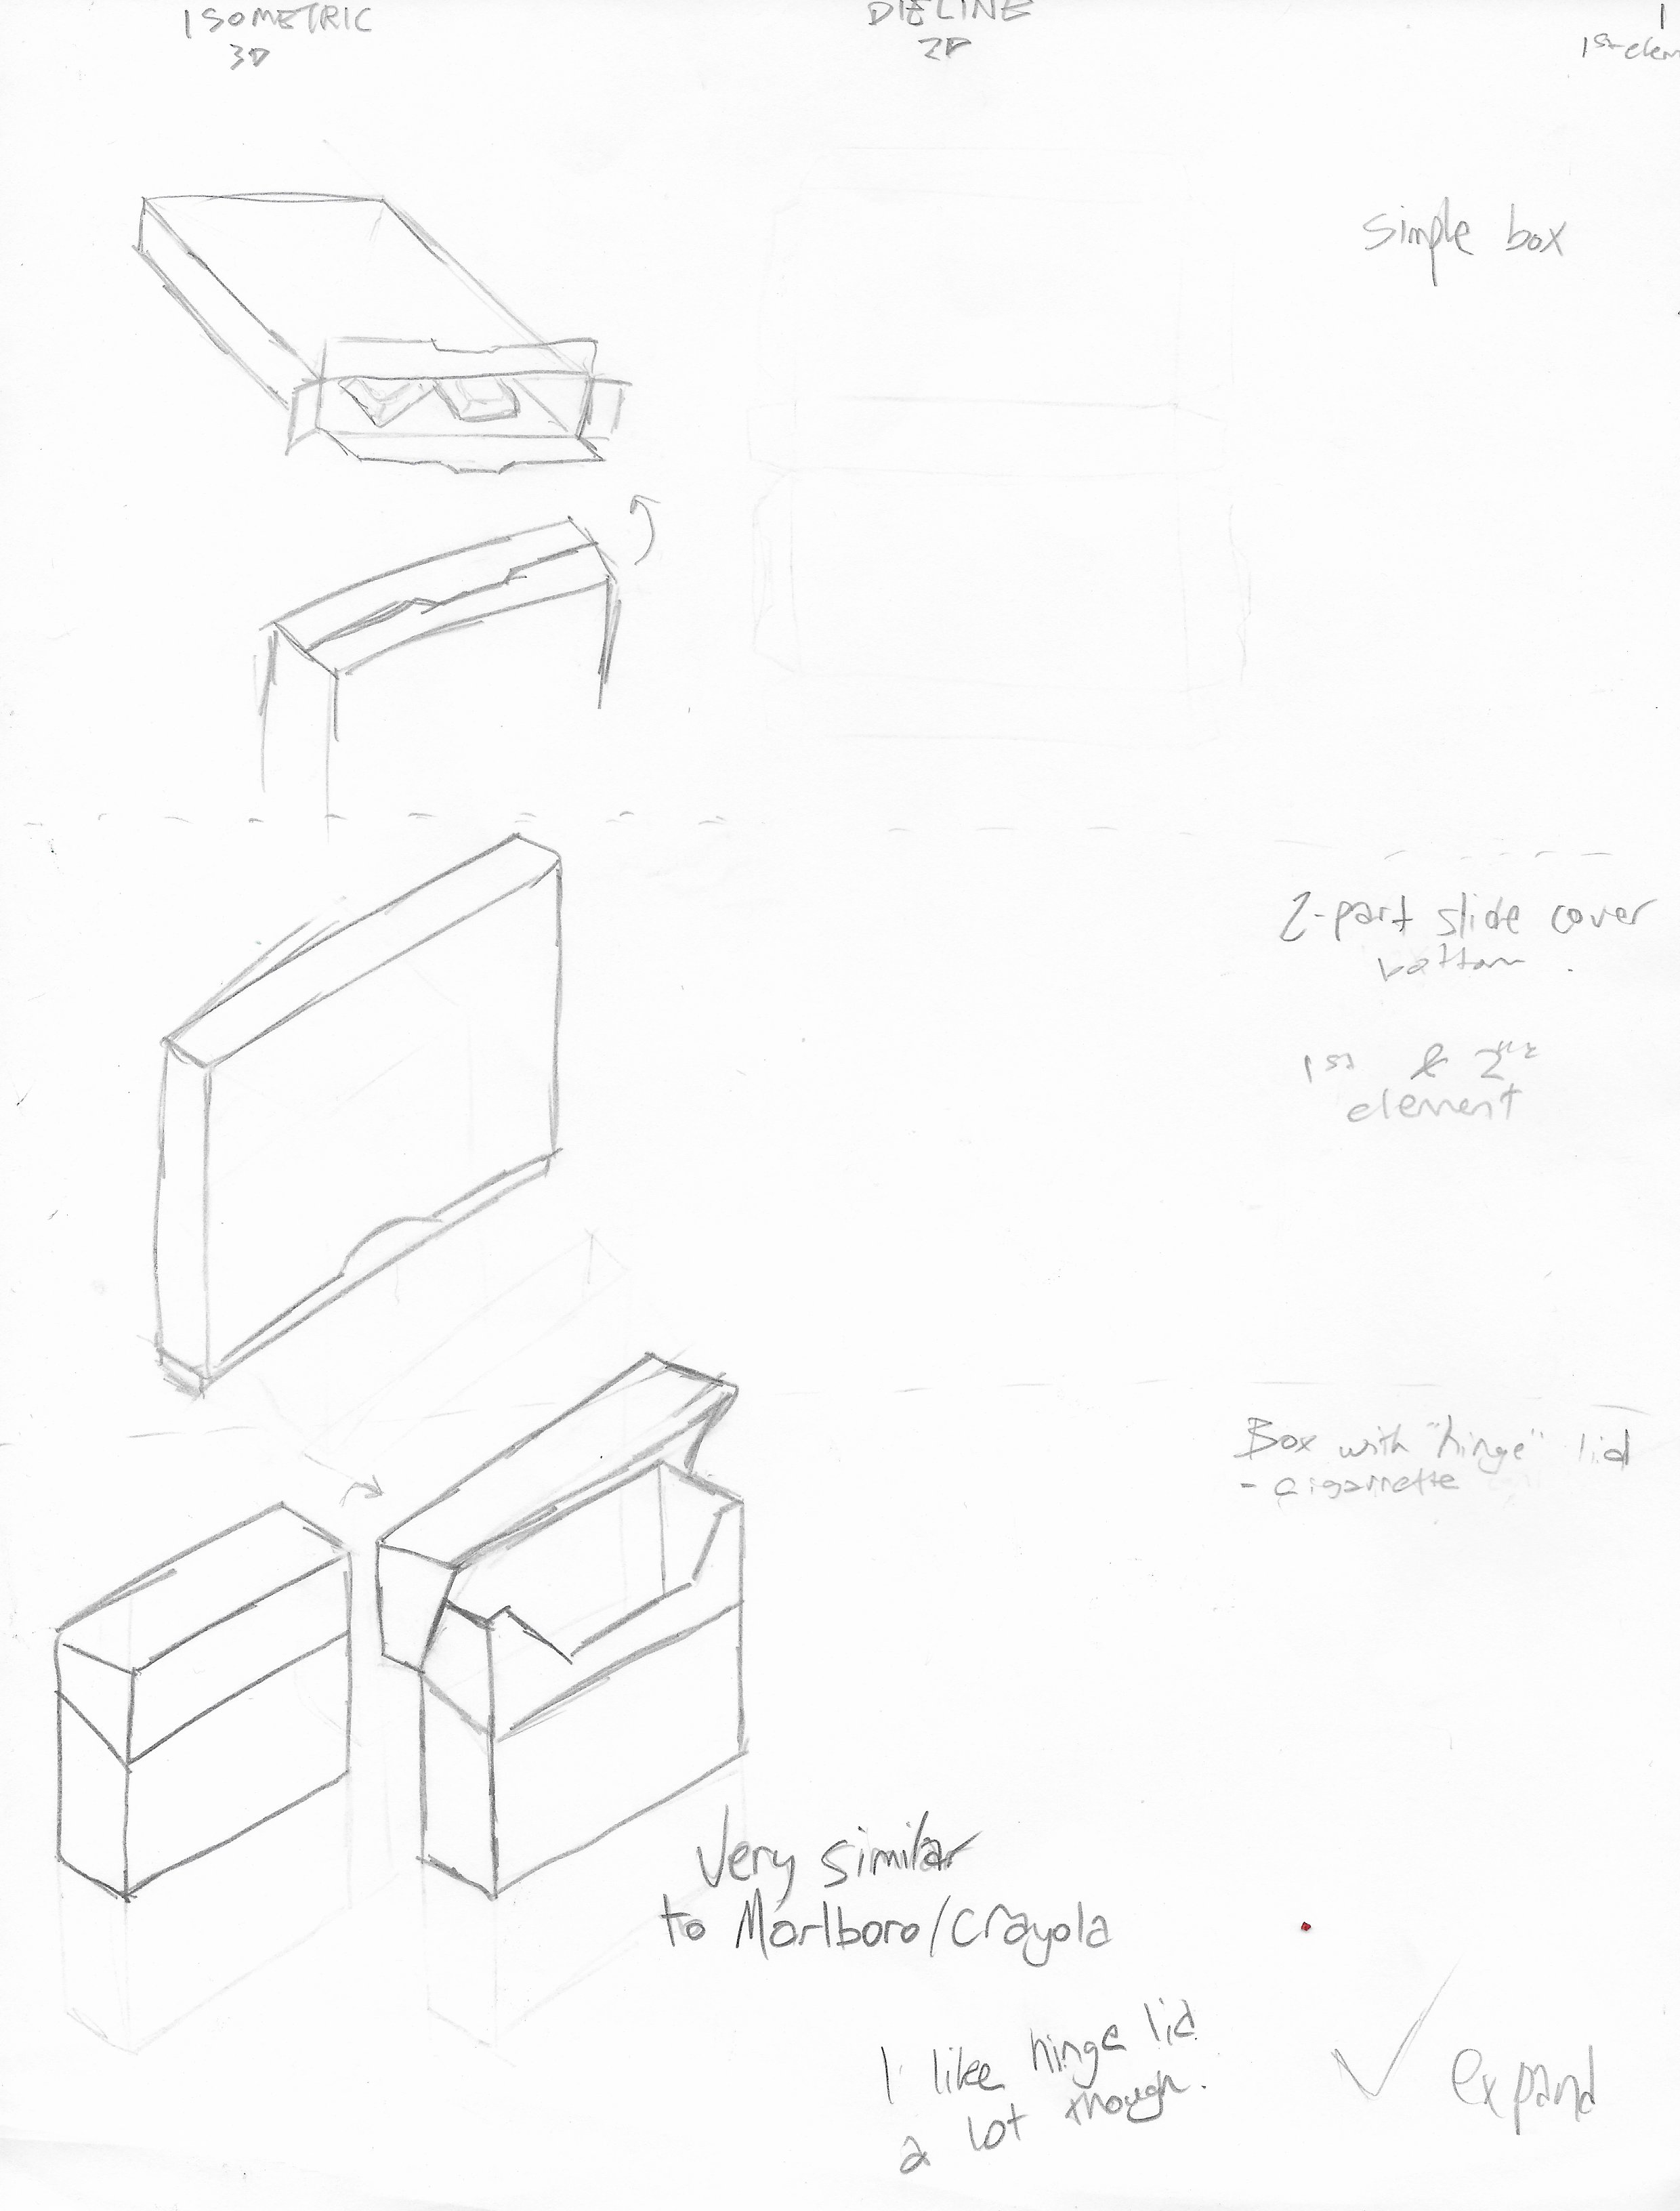 ISOMETRIC
3D
DIELINE
2D
1
1st elem
simple box
2-part slide cover
bottom
1st & 2nd
element
Box with "hinge" lid
- cigarrette
Very similar
to Marlboro/Crayola
I like hinge lid
a lot though.
expand